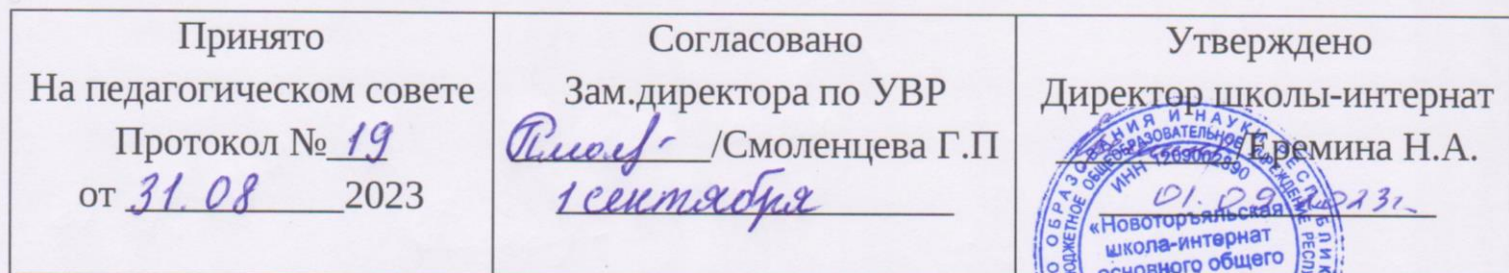 Принято
На педагогическом совете
Протокол № 19
от 31.08 2023
Согласовано
Зам.директора по УВР
/Смоленцева Г.П
1 сентября
Утверждено
Директор школы-интернат
/Еремина Н.А.
01.09.2023г.
ИНН 1209002890
«Новоторъяльская
школа-интернат
основного общего